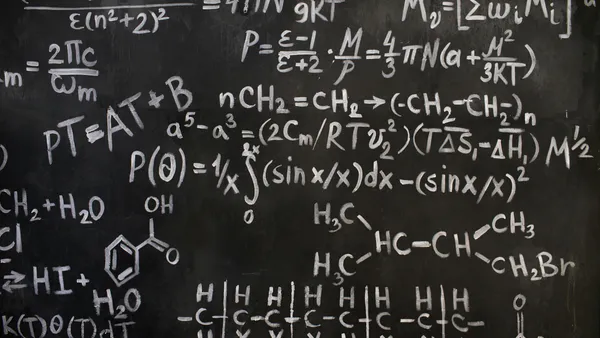 ε(n²+2)²
= 4πN
9KT
M_v = [Σω_iM_i]
P = ε-1/ε+2 · M/P = 4/3 πN(a + M²/3KT)
m = 2πc/ω_m
PT = AT + B
nCH₂ = CH₂ → (-CH₂-CH-)n
a⁵-a³ = (2Cm/RTV₂²)(TΔS₁-ΔH₁) M^1/2
P(Θ) = 1/x ∫₀^2x (sin x/x)dx - (sin x/x)²
CH₂ + H₂O
OH
O
Cl
H₃C
CH₃
HC-CH
H₃C
CH₂Br
⇌ HI +
H₂O
H H H H H H H H
-C-C-C-C-C-C-C-C-
O
K(T)Θ(T)dT